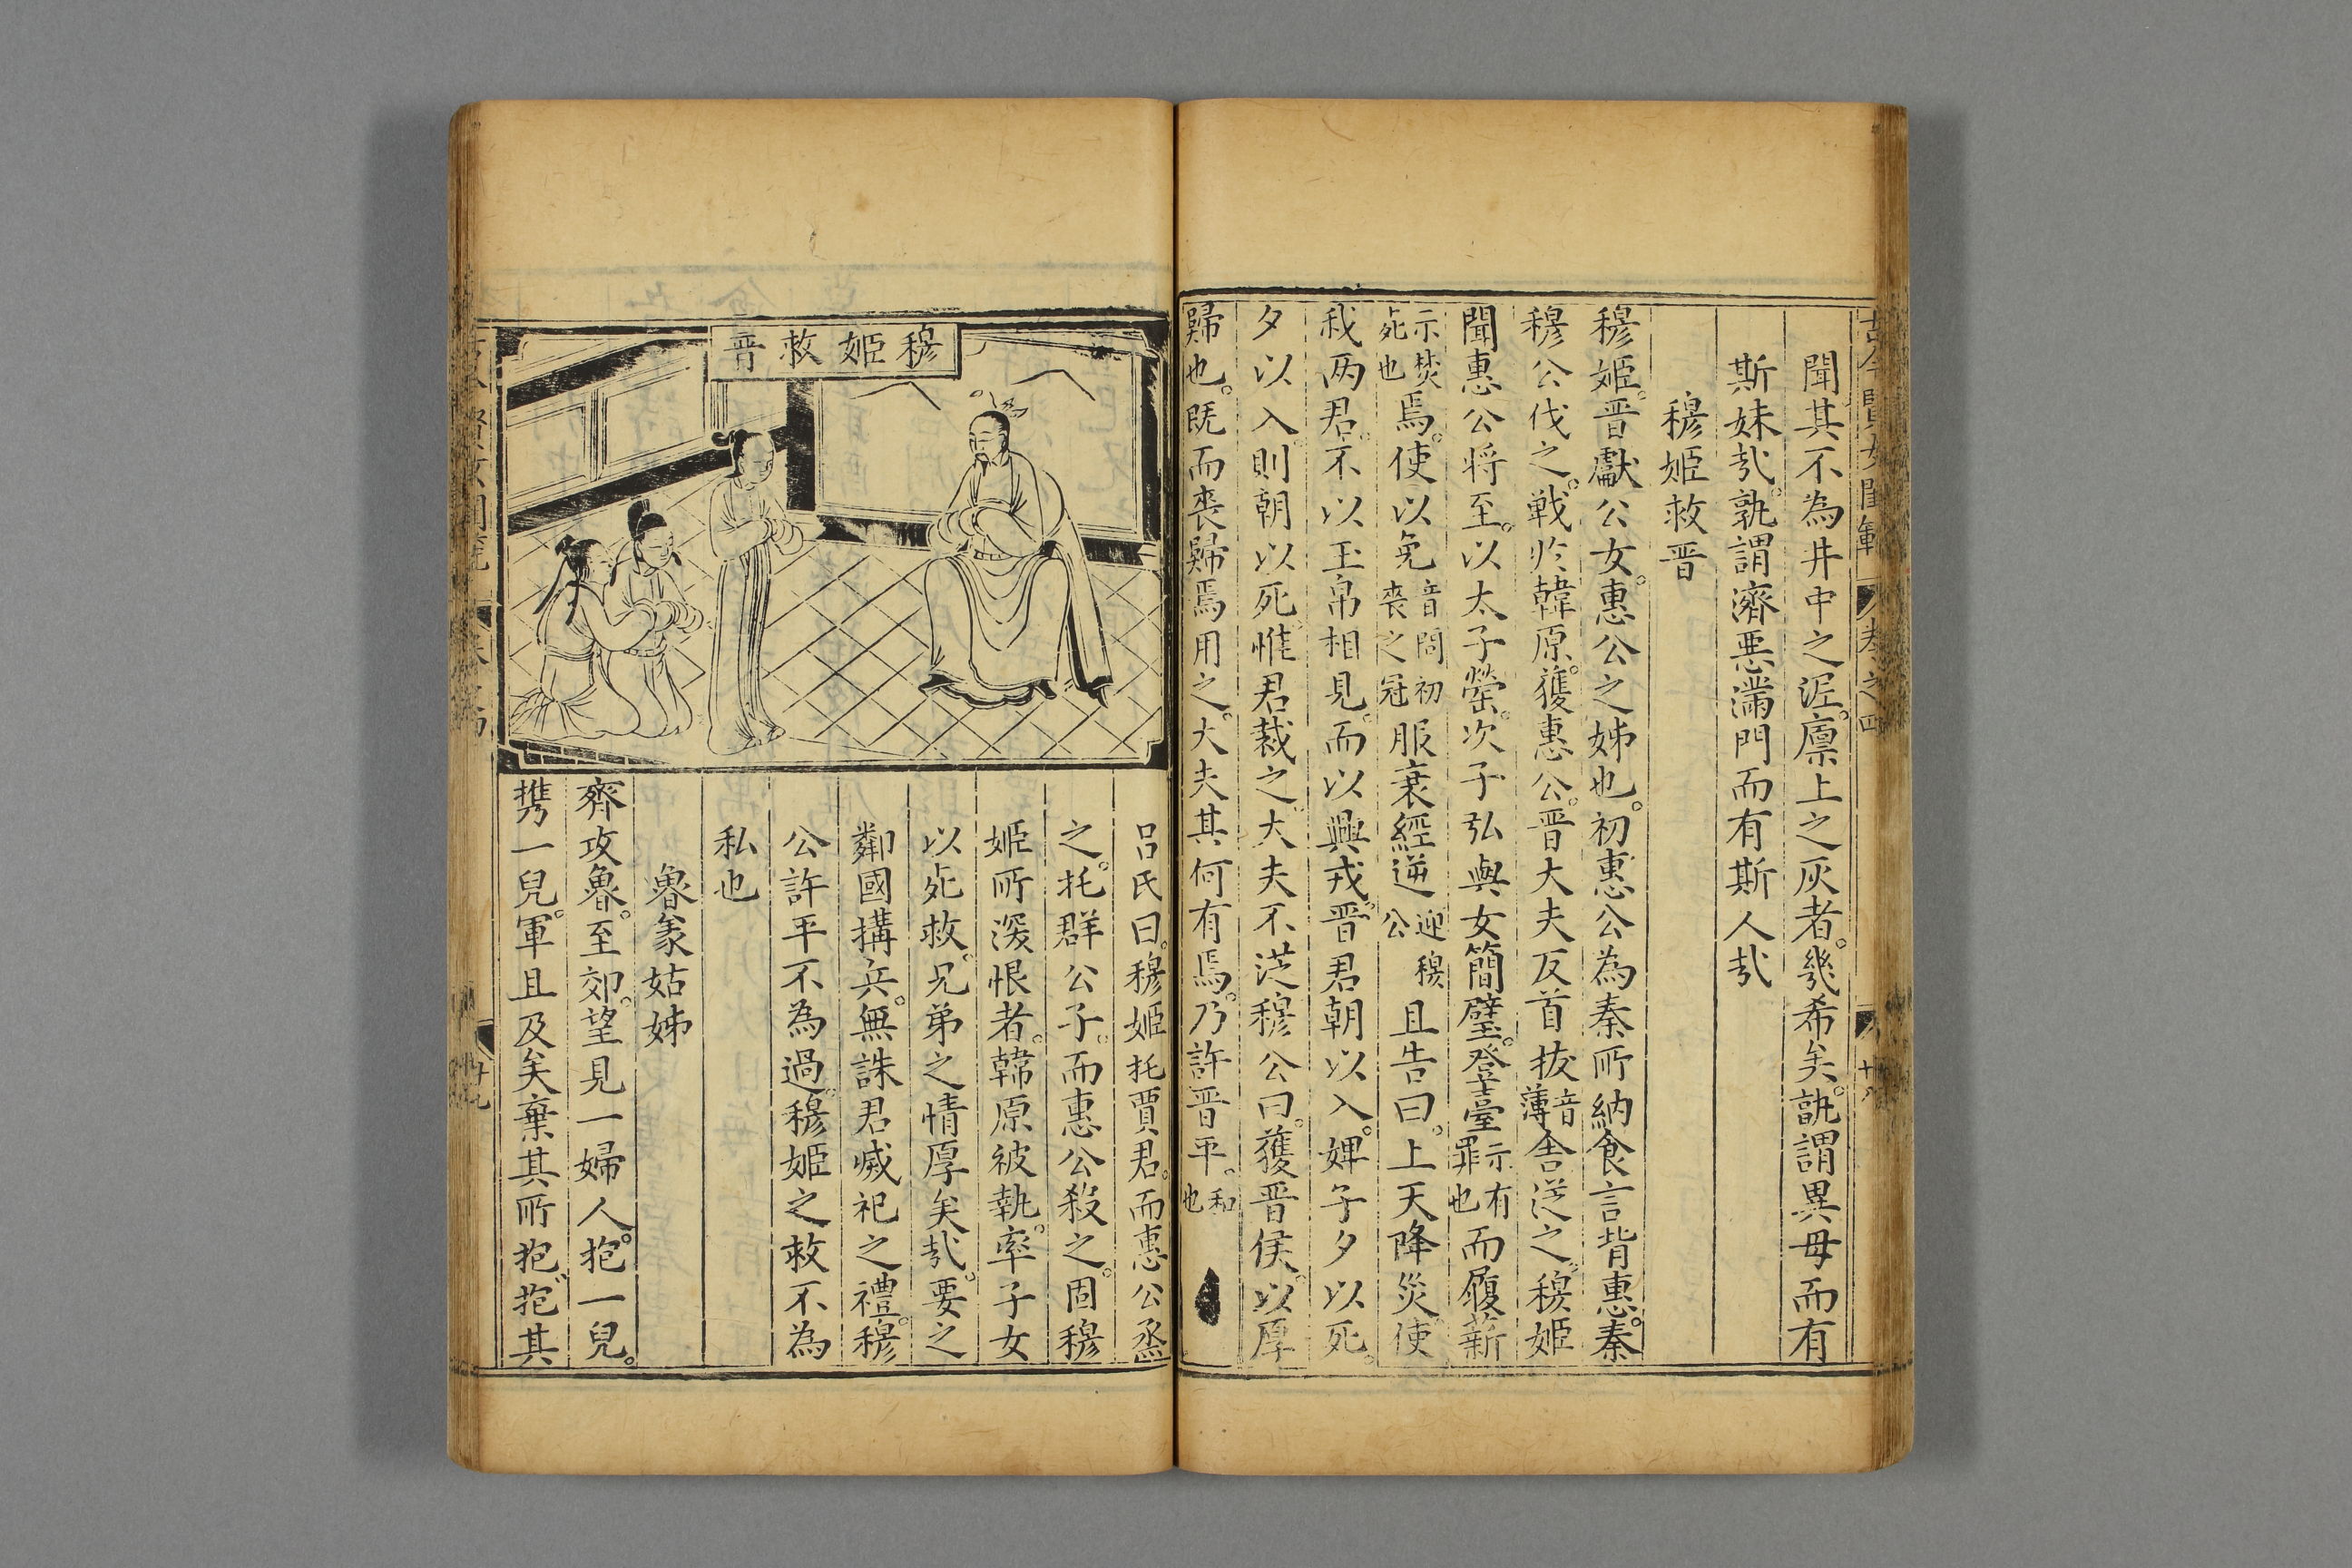 古今賢女閨範 卷之四
聞其不為井中之泥。廪上之灰者。幾希矣。孰謂異母而有
斯妹㢤。孰謂濟惡滿門而有斯人㢤
穆姬救晋
穆姬。晋獻公女。惠公之姊也。初惠公為秦所納食言背惠。秦
穆公伐之。戰於韓原。獲惠公。晋大夫反首拔音薄舍従之。穆姬
聞惠公将至。以太子罃。次子弘與女簡璧。登臺示有罪也而履薪
示焚死也焉。使以免音問初喪之冠服衰絰逆迎穆公且告曰。上天降災。使
我两君。不以玉帛相見。而以興戎。晋君朝以入。婢子夕以死。
夕以入。則朝以死。惟君裁之。大夫不従穆公曰。獲晋侯。以厚
歸也。既而喪歸焉用之。大夫其何有焉。乃許晋平。和也
穆姬救晋
吕氏曰。穆姬托賈君。而惠公烝
之。托群公子。而惠公殺之。固穆
姬所深恨者。韓原被執。率子女
以死救。兄弟之情厚矣㢤。要之
鄰國搆兵。無誅君滅祀之禮。穆
公許平不為過。穆姬之救不為
私也
魯義姑姊
齊攻魯。至郊。望見一婦人。抱一兒。
携一兒。軍且及矣棄其所抱。抱其